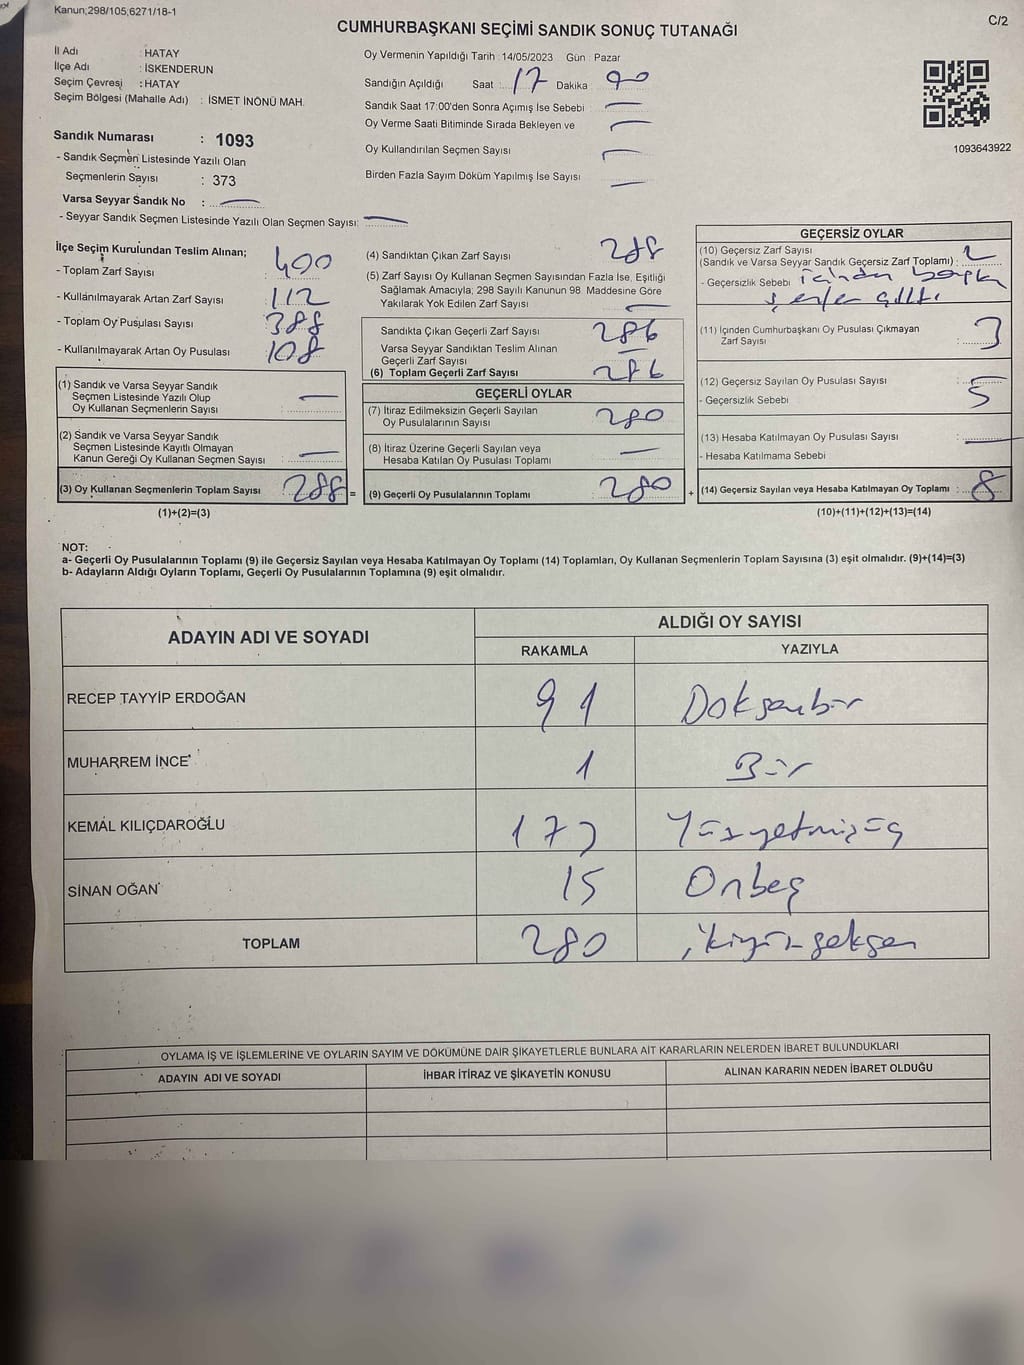 Kanun;298/105,6271/18-1
C/2
CUMHURBAŞKANI SEÇİMİ SANDIK SONUÇ TUTANAĞI
İl Adı : HATAY
İlçe Adı : İSKENDERUN
Seçim Çevresi : HATAY
Seçim Bölgesi (Mahalle Adı) : İSMET İNÖNÜ MAH.
Oy Vermenin Yapıldığı Tarih : 14/05/2023 Gün : Pazar
Sandığın Açıldığı Saat : 17 Dakika :
Sandık Saat 17:00'den Sonra Açımış İse Sebebi :
Oy Verme Saati Bitiminde Sırada Bekleyen ve
Oy Kullandırılan Seçmen Sayısı
Birden Fazla Sayım Döküm Yapılmış İse Sayısı
1093643922
Sandık Numarası : 1093
- Sandık Seçmen Listesinde Yazılı Olan
Seçmenlerin Sayısı : 373
Varsa Seyyar Sandık No :
- Seyyar Sandık Seçmen Listesinde Yazılı Olan Seçmen Sayısı:
İlçe Seçim Kurulundan Teslim Alınan;
- Toplam Zarf Sayısı 400
- Kullanılmayarak Artan Zarf Sayısı 112
- Toplam Oy Pusulası Sayısı 388
- Kullanılmayarak Artan Oy Pusulası 108
(1) Sandık ve Varsa Seyyar Sandık
Seçmen Listesinde Yazılı Olup
Oy Kullanan Seçmenlerin Sayısı :
(2) Sandık ve Varsa Seyyar Sandık
Seçmen Listesinde Kayıtlı Olmayan
Kanun Gereği Oy Kullanan Seçmen Sayısı :
(3) Oy Kullanan Seçmenlerin Toplam Sayısı 288 =
(1)+(2)=(3)
(4) Sandıktan Çıkan Zarf Sayısı 288
(5) Zarf Sayısı Oy Kullanan Seçmen Sayısından Fazla İse, Eşitliği
Sağlamak Amacıyla; 298 Sayılı Kanunun 98. Maddesine Göre
Yakılarak Yok Edilen Zarf Sayısı
Sandıkta Çıkan Geçerli Zarf Sayısı 286
Varsa Seyyar Sandıktan Teslim Alınan
Geçerli Zarf Sayısı
(6) Toplam Geçerli Zarf Sayısı 286
GEÇERLİ OYLAR
(7) İtiraz Edilmeksizin Geçerli Sayılan
Oy Pusulalarının Sayısı 280
(8) İtiraz Üzerine Geçerli Sayılan veya
Hesaba Katılan Oy Pusulası Toplamı
(9) Geçerli Oy Pusulalarının Toplamı : 280 +
GEÇERSİZ OYLAR
(10) Geçersiz Zarf Sayısı
(Sandık ve Varsa Seyyar Sandık Geçersiz Zarf Toplamı) : 2
- Geçersizlik Sebebi içinden başka
şeyler çıktı
(11) İçinden Cumhurbaşkanı Oy Pusulası Çıkmayan
Zarf Sayısı : 3
(12) Geçersiz Sayılan Oy Pusulası Sayısı :
- Geçersizlik Sebebi 5
(13) Hesaba Katılmayan Oy Pusulası Sayısı :
- Hesaba Katılmama Sebebi
(14) Geçersiz Sayılan veya Hesaba Katılmayan Oy Toplamı : 8
(10)+(11)+(12)+(13)=(14)
NOT:
a- Geçerli Oy Pusulalarının Toplamı (9) ile Geçersiz Sayılan veya Hesaba Katılmayan Oy Toplamı (14) Toplamları, Oy Kullanan Seçmenlerin Toplam Sayısına (3) eşit olmalıdır. (9)+(14)=(3)
b- Adayların Aldığı Oyların Toplamı, Geçerli Oy Pusulalarının Toplamına (9) eşit olmalıdır.
ADAYIN ADI VE SOYADI
ALDIĞI OY SAYISI
RAKAMLA YAZIYLA
RECEP TAYYİP ERDOĞAN 91 Doksanbir
MUHARREM İNCE 1 Bir
KEMAL KILIÇDAROĞLU 173 Yüzyetmişüç
SİNAN OĞAN 15 Onbeş
TOPLAM 280 ikiyüzseksen
OYLAMA İŞ VE İŞLEMLERİNE VE OYLARIN SAYIM VE DÖKÜMÜNE DAİR ŞİKAYETLERLE BUNLARA AİT KARARLARIN NELERDEN İBARET BULUNDUKLARI
ADAYIN ADI VE SOYADI İHBAR İTİRAZ VE ŞİKAYETİN KONUSU ALINAN KARARIN NEDEN İBARET OLDUĞU